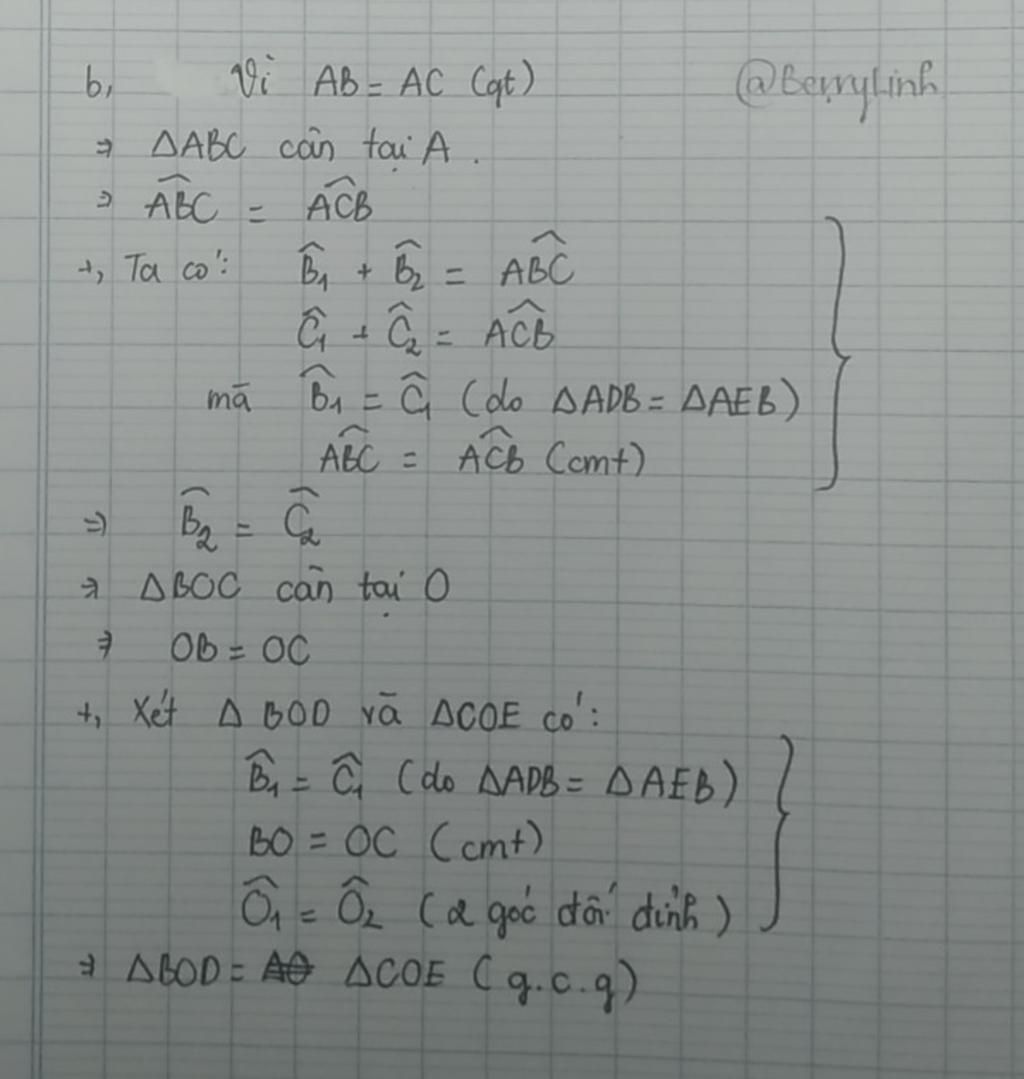 b, Vì AB = AC (gt) @Berrylinh
⇒ ΔABC cân tại A.
⇒ \widehat{ABC} = \widehat{ACB}
+, Ta có: \widehat{B}₁ + \widehat{B}₂ = \widehat{ABC}
\widehat{C}₁ + \widehat{C}₂ = \widehat{ACB}
mà \widehat{B}₁ = \widehat{C}₁ (do ΔADB = ΔAEB)
\widehat{ABC} = \widehat{ACB} (cmt)
⇒ \widehat{B}₂ = \widehat{C}₂
⇒ ΔBOC cân tại O
⇒ OB = OC
+, Xét Δ BOD và ΔCOE có:
\widehat{B}₁ = \widehat{C}₁ (do ΔADB = ΔAEB)
BO = OC (cmt)
\widehat{O}₁ = \widehat{O}₂ (2 góc đối đỉnh)
⇒ ΔBOD = ΔCOE (g.c.g)